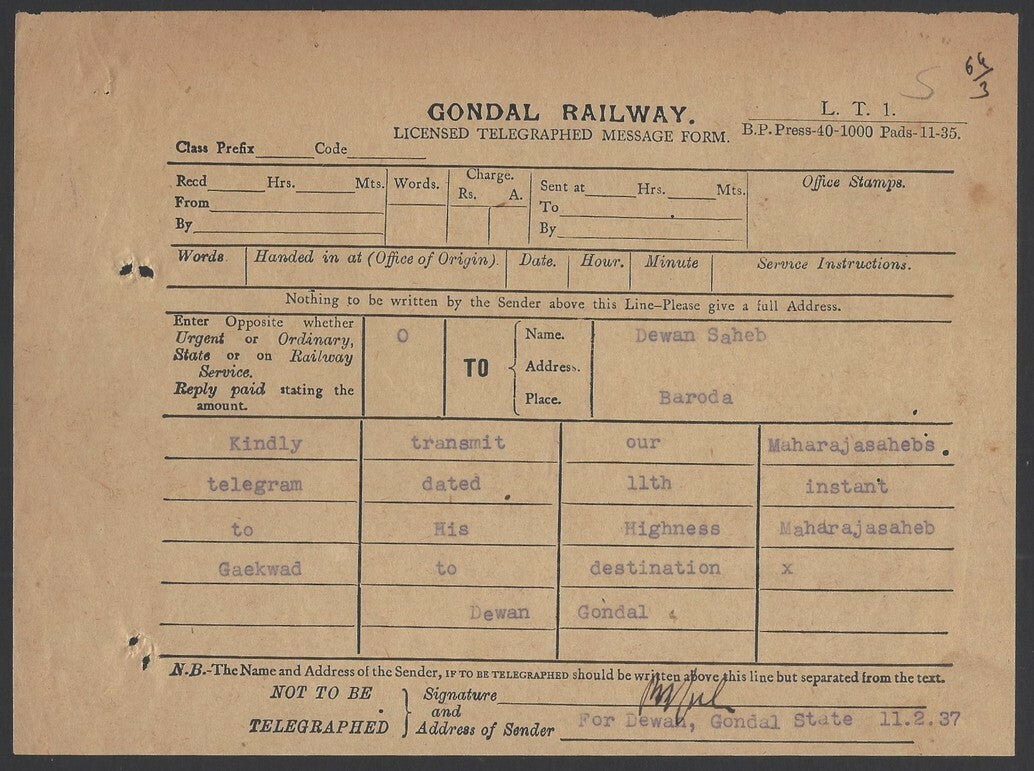 64/3
GONDAL RAILWAY.
L. T. 1.
LICENSED TELEGRAPHED MESSAGE FORM.
B.P. Press-40-1000 Pads-11-35.
Class Prefix Code
Recd Hrs. Mts. Words. Charge. Sent at Hrs. Mts. Office Stamps.
Rs. A.
From To
By By
Words. Handed in at (Office of Origin). Date. Hour. Minute Service Instructions.
Nothing to be written by the Sender above this Line-Please give a full Address.
Enter Opposite whether
Urgent or Ordinary,
State or on Railway
Service.
Reply paid stating the
amount.
O
TO
Name. Dewan Saheb
Address.
Place. Baroda
Kindly transmit our Maharajasahebs
telegram dated 11th instant
to His Highness Maharajasaheb
Gaekwad to destination x
Dewan Gondal
N.B.-The Name and Address of the Sender, IF TO BE TELEGRAPHED should be written above this line but separated from the text.
NOT TO BE
TELEGRAPHED
Signature
and
Address of Sender
For Dewan, Gondal State 11.2.37